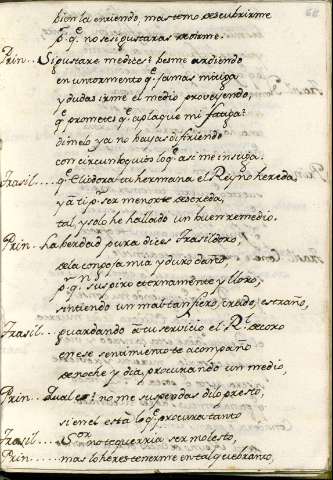 68
bien la entiendo, mas como descubrirme
p.q̃ no se si gustaras de oirme.
Prin... Si gustare me dices? besme ardiendo
en un tormento q̃ jamas mitiga
y dudas irme el medio proveyendo,
q̃ prometes q̃ aplaque mi fatiga?
dimelo ya no bayas difiriendo
con circunloquios lo q̃ asi me instiga.
Frasil.... q̃ Cliodora tu hermana el Reyno hereda,
y a ti p.r ser menor te desereda,
tal, y solo he hallado un buen remedio.
Prin.. La berdad pura dices Frasildoro,
de la congoja mia y duro daño
p.q̃ suspiro eternamente y lloro,
sintiendo un mal tan fiero, crudo, estraño,
Frasil... guardando a tu servicio el R.l decoro
en ese sentimiento te acompaño
de noche y dia, procurando un medio,
Prin... Qual es? no me suspendas dilo presto,
si en el está lo q̃ procura tanto
Frasil.... S.or no te querria ser molesto,
Prin.... mas lo heres en tenerme en tal quebranto,